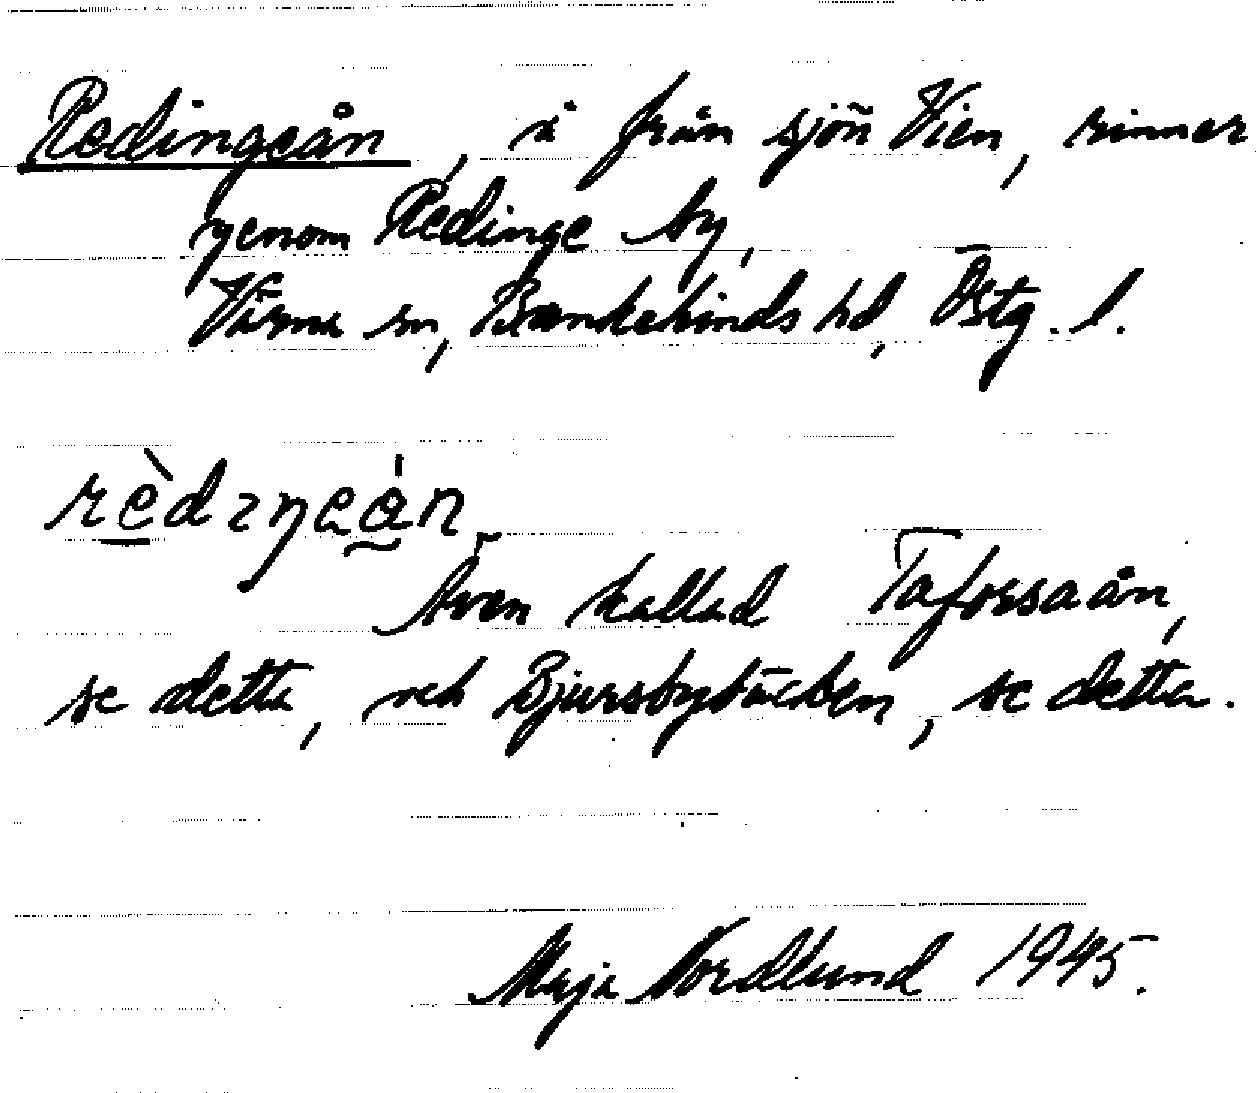 Redingeån, å från sjön Vien, rinner
genom Redinge by,
Vårna sn, Bankekinds hd, Östg. l.
Även kallad Taforsaån,
se detta, och Bjursbybäcken, se detta.
Maja Nordlund 1945.